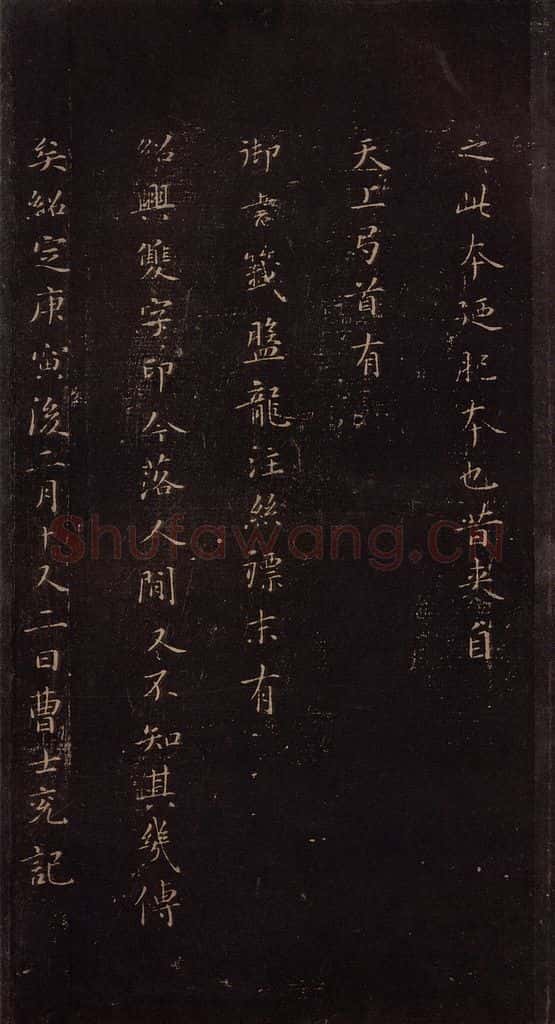 之此本廼肥本也昔来自
天上弓首有
御書籤盤龍注絲褾末有
紹興雙字印今落人間又不知其幾傳
矣紹定庚寅後二月十又二日曹士冕記
Shufawang.CN